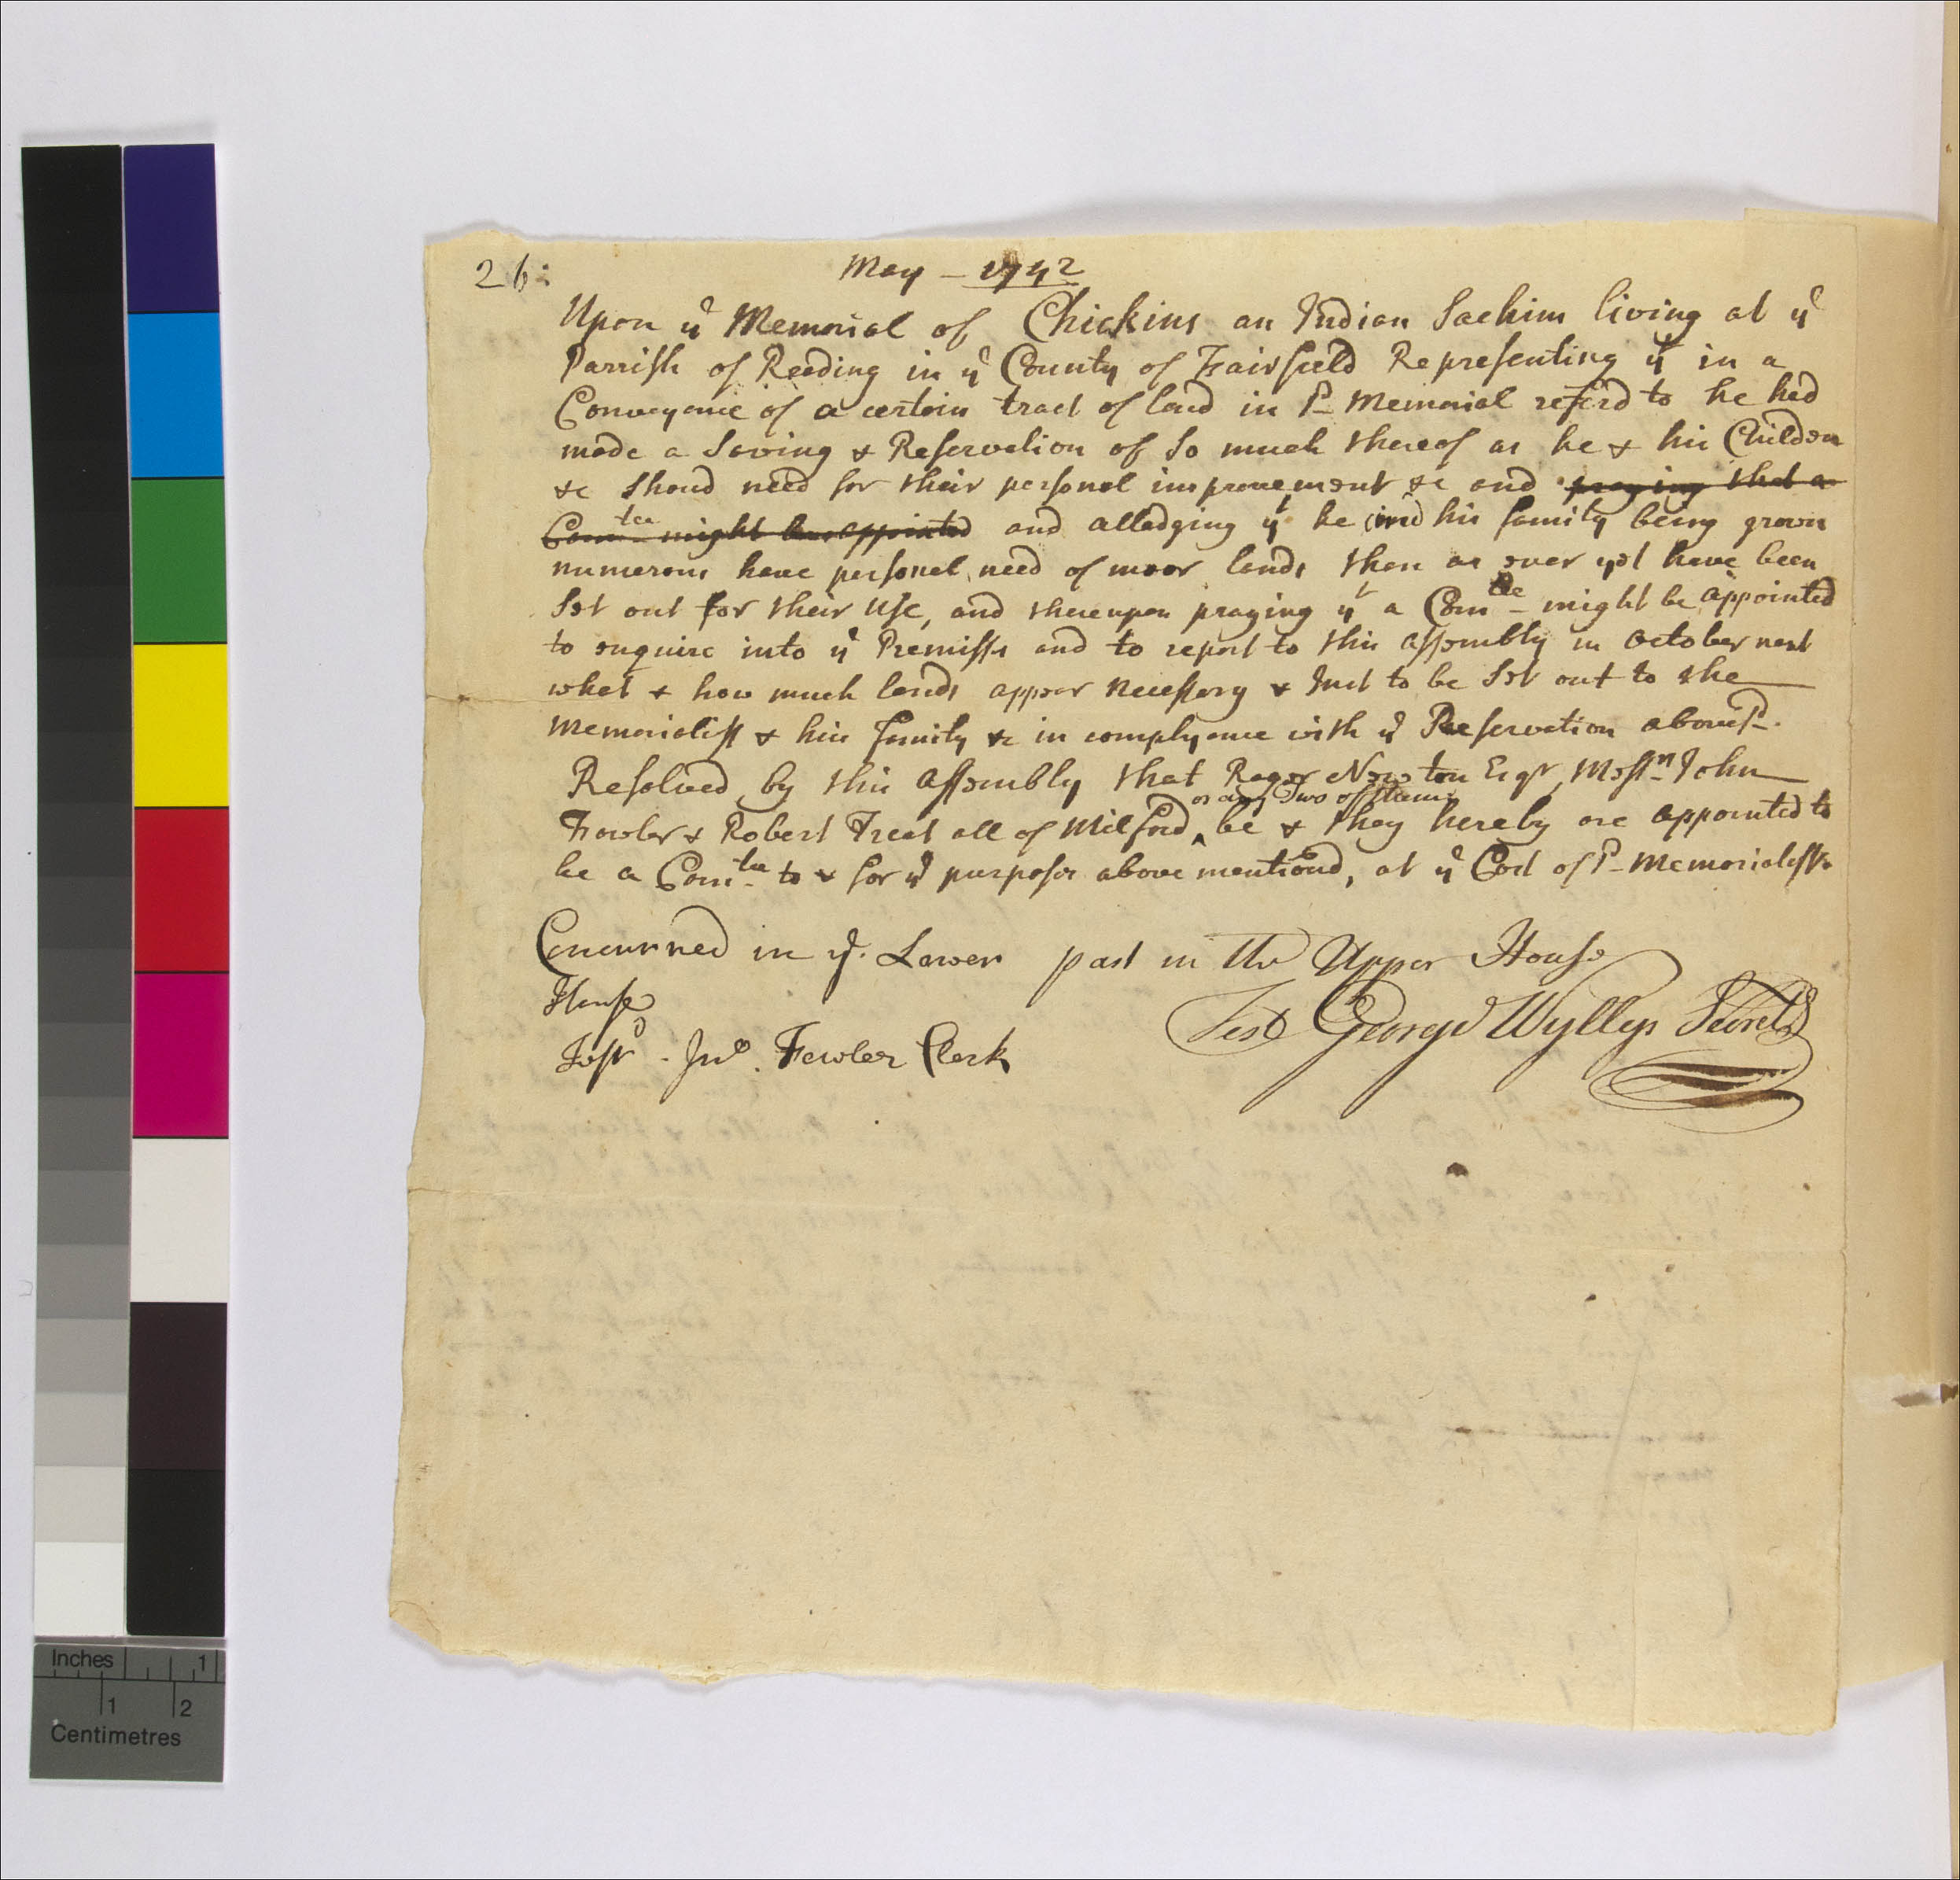 26:
May - 1742
Upon ye Memorial of Chickins an Indian Sachim living at ye
Parrish of Reeding in ye County of Fairfield Representing yt in a
Conveyance of a certain tract of land in sd Memorial referd to he had
made a Saving & Reservation of So much thereof as he & his Children
&c Shoud need for their personal improvement &c and praying that a
Comtee might be appointed and alledging yt he and his family being grown
numerous have personal need of moor lands then as ever yet have been
Set out for their Use, and thereupon praying yt a Comtee might be appointed
to enquire into ye Premisses and to report to this assembly in October next
what & how much lands appear necessary & Just to be Set out to the
Memorialist & his family &c in complyance with ye Reservation abovesd.
Resolved by this Assembly that Roger Newton Esqr Messrs John
or any Two of them
Fowler & Robert Treat all of Milford ^ be & they hereby are appointed to
be a Comtee to & for ye purposes above mentioned, at ye Cost of sd Memorialists
Concurrned in ye. Lower past in the Upper House
House
Test George Wyllys Secretry
Test - Jno. Fowler Clerk
Inches 1
1 2
Centimetres